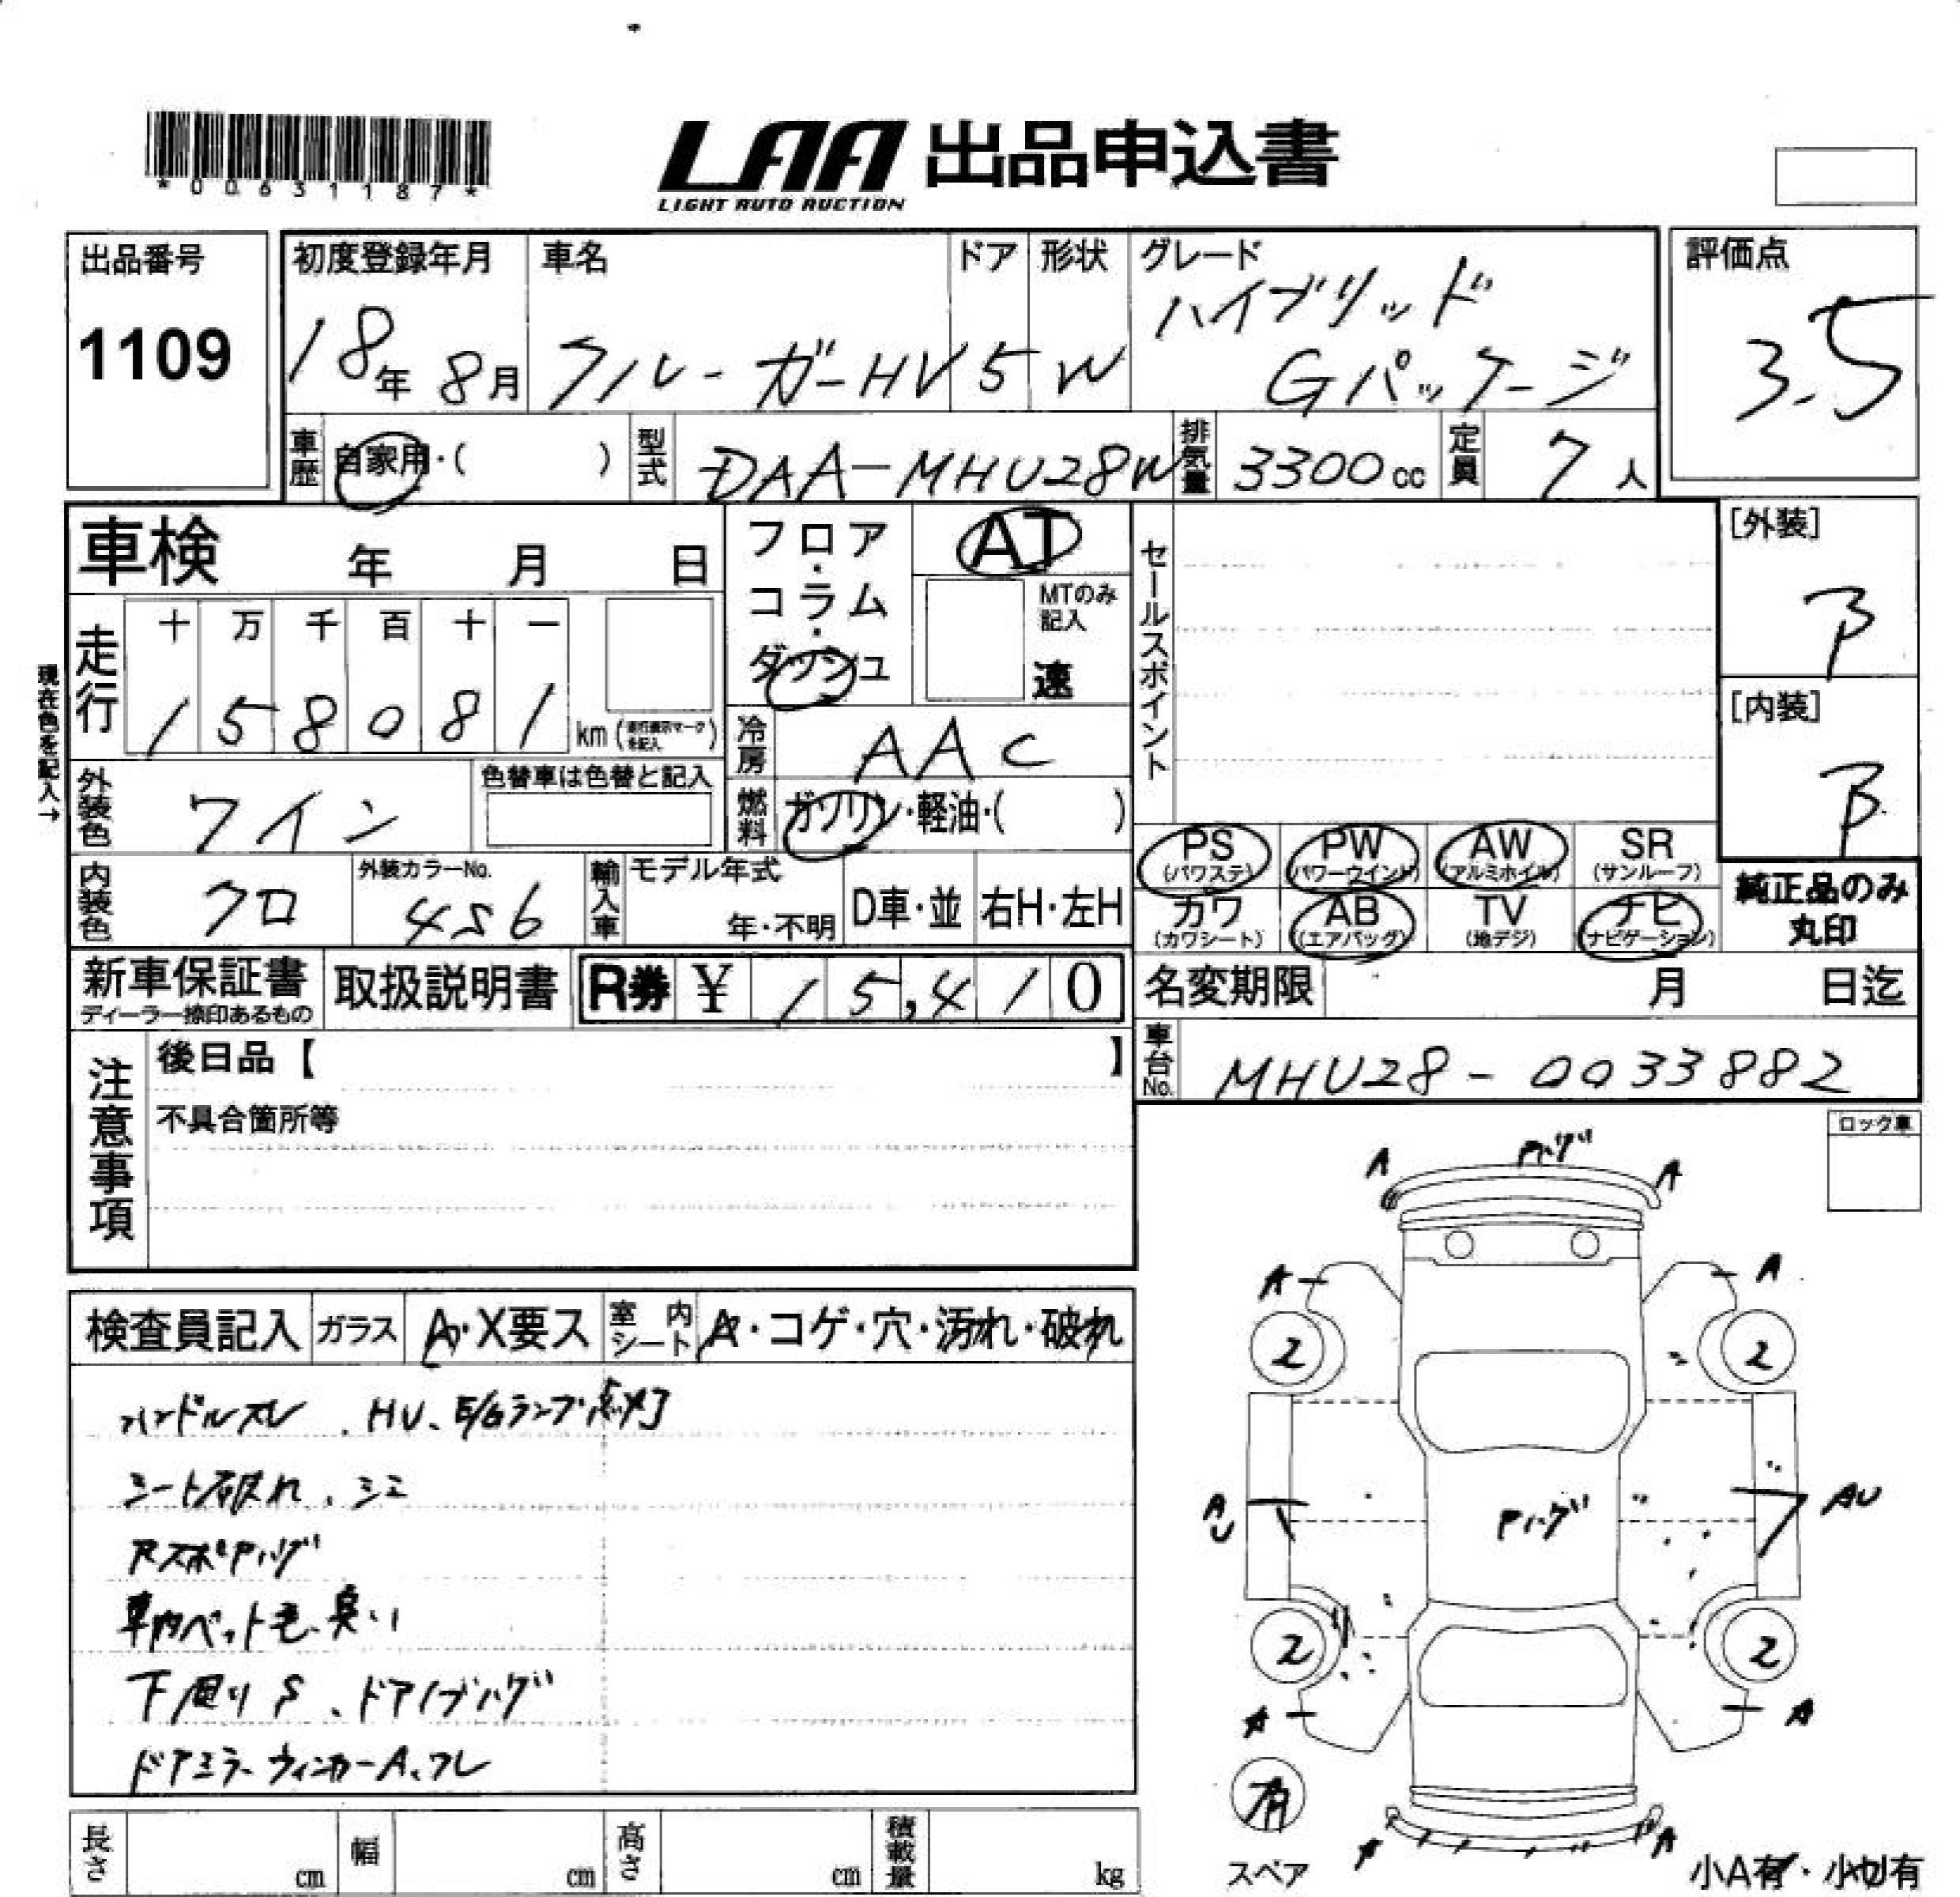 *00631187*
LAA 出品申込書
LIGHT AUTO AUCTION
出品番号
1109
初度登録年月
18年 8月
車名
クルーガーHV
ドア
5
形状
W
グレード
ハイブリッド
Gパッケージ
評価点
3.5
車歴 自家用・( )
型式 DAA-MHU28W
排気量 3300cc
定員 7人
車検 年 月 日
現在色を記入→
走行
十 万 千 百 十 一
1 5 8 0 8 1 km
フロア・コラム・ダッシュ
AT
MTのみ記入
速
冷房 AAC
燃料 ガソリン・軽油・( )
セールスポイント
[外装]
B
[内装]
B
外装色 ワイン
色替車は色替と記入
内装色 クロ
外装カラーNo.
4S6
輸入車
モデル年式
年・不明
D車・並
右H・左H
PS (パワステ)
PW (パワーウインド)
AW (アルミホイル)
SR (サンルーフ)
カワ (カワシート)
AB (エアバッグ)
TV (地デジ)
ナビ (ナビゲーション)
純正品のみ
丸印
新車保証書
ディーラー捺印あるもの
取扱説明書
R券 ¥ 15,410
名変期限 月 日迄
車台No. MHU28-0033882
注意事項
後日品【 】
不具合箇所等
ロック車
検査員記入
ガラス A・X要ス
室内シート A・コゲ・穴・汚れ・破れ
ハンドルスレ、HV、E/Gランプ点灯
シート破れ、シミ
Rスポ Pハゲ
車内ペット毛、臭い
下廻りS、ドアノブハゲ
ドアミラーウィンカーA、ワレ
Pハゲ
A A
A A
2 2
AU Pハゲ AU
2 2
A A
有
スペア
A A
小A有・小U有
長さ cm
幅 cm
高さ cm
積載量 kg